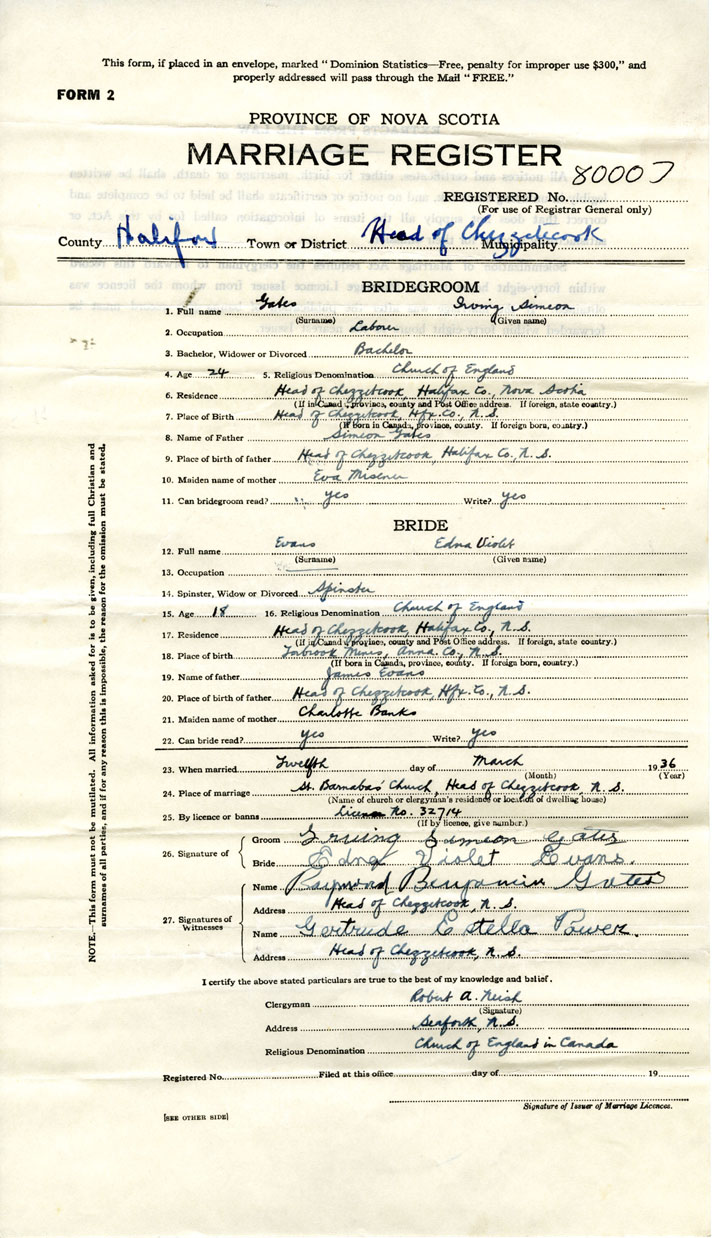 This form, if placed in an envelope, marked "Dominion Statistics—Free, penalty for improper use $300," and
properly addressed will pass through the Mail "FREE."
FORM 2
PROVINCE OF NOVA SCOTIA
MARRIAGE REGISTER
80007
REGISTERED No.
(For use of Registrar General only)
County Halifax Town or District Head of Chezzetcook Municipality
BRIDEGROOM
1. Full name Gates Irving Simeon
(Surname) (Given name)
2. Occupation Labour
3. Bachelor, Widower or Divorced Bachelor
4. Age 24 5. Religious Denomination Church of England
6. Residence Head of Chezzetcook, Halifax Co., Nova Scotia
(If in Canada, province, county and Post Office address. If foreign, state country.)
7. Place of Birth Head of Chezzetcook, Hfx. Co., N.S.
(If born in Canada, province, county. If foreign born, country.)
8. Name of Father Simeon Gates
9. Place of birth of father Head of Chezzetcook, Halifax Co., N.S.
10. Maiden name of mother Eva Misener
11. Can bridegroom read? yes Write? yes
BRIDE
12. Full name Evans Edna Violet
(Surname) (Given name)
13. Occupation
14. Spinster, Widow or Divorced Spinster
15. Age 18 16. Religious Denomination Church of England
17. Residence Head of Chezzetcook, Halifax Co., N.S.
(If in Canada, province, county and Post Office address. If foreign, state country.)
18. Place of birth Torbrook Mines, Anna. Co., N.S.
(If born in Canada, province, county. If foreign born, country.)
19. Name of father James Evans
20. Place of birth of father Head of Chezzetcook, Hfx. Co., N.S.
21. Maiden name of mother Charlotte Banks
22. Can bride read? yes Write? yes
23. When married Twelfth day of March 1936
(Month) (Year)
24. Place of marriage St. Barnabas' Church, Head of Chezzetcook, N.S.
(Name of church or clergyman's residence or location of dwelling house)
25. By licence or banns License No. 32714
(If by licence, give number.)
26. Signature of Groom Irving Simeon Gates
Bride Edna Violet Evans.
27. Signatures of Witnesses Name Raymond Benjamin Gates
Address Head of Chezzetcook, N.S.
Name Gertrude Estella Power.
Address Head of Chezzetcook, N.S.
I certify the above stated particulars are true to the best of my knowledge and belief.
Clergyman Robert A. Neish
(Signature)
Address Seaforth, N.S.
Religious Denomination Church of England in Canada
Registered No. Filed at this office day of 19
Signature of Issuer of Marriage Licences.
[SEE OTHER SIDE]
NOTE.—This form must not be mutilated. All information asked for is to be given, including full Christian and
surnames of all parties, and if for any reason this is impossible, the reason for the omission must be stated.